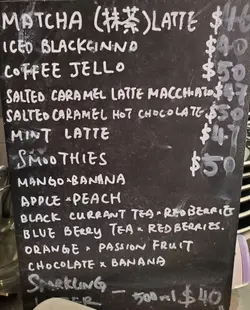 MATCHA (抹茶) LATTE
ICED BLACKCINNO
COFFEE JELLO $50
SALTED CARAMEL LATTE MACCHIATO
SALTED CARAMEL HOT CHOCOLATE $50
MINT LATTE
SMOOTHIES $50
MANGO × BANANA
APPLE × PEACH
BLACK CURRANT TEA × REDBERRIES
BLUE BERRY TEA × REDBERRIES.
ORANGE × PASSION FRUIT
CHOCOLATE × BANANA
SPARKLING
500ml $40